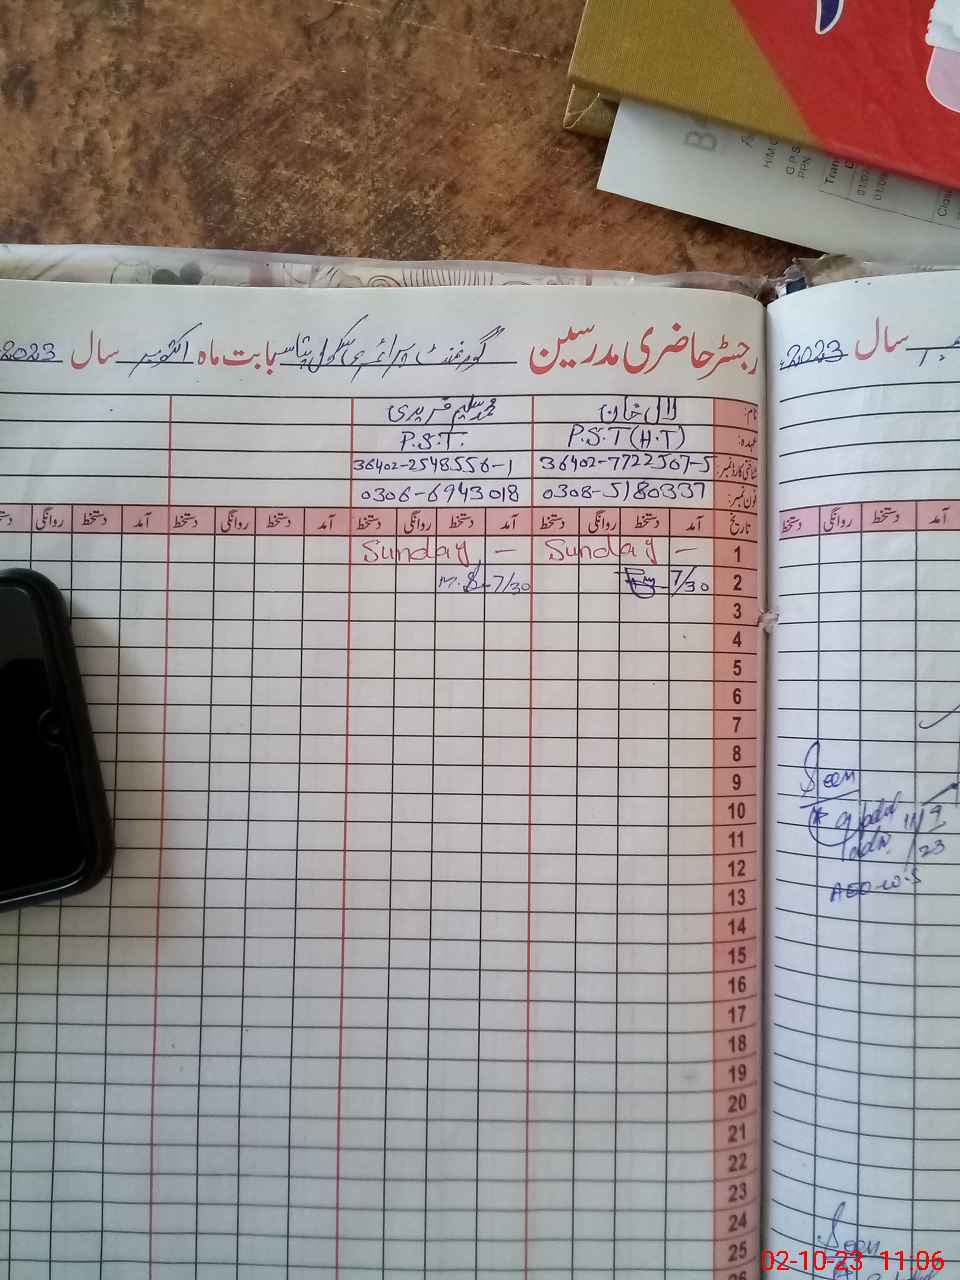 رجسٹر حاضری مدرسین گورنمنٹ پرائمری سکول بابت ماہ اکتوبر سال 2023
نام: لال خان محمد سلیم فریدی
عہدہ: P.S.T (H.T) P.S.T.
شناختی کارڈ نمبر: 36402-7722567-5 36402-2548556-1
فون نمبر: 0308-5180337 0306-6943018
تاریخ آمد دستخط روانگی دستخط آمد دستخط روانگی دستخط آمد دستخط روانگی دستخط آمد دستخط روانگی
1 — Sunday — Sunday
2 7/30 7/30
3
4
5
6
7
8
9
10
11
12
13
14
15
16
17
18
19
20
21
22
23
24
25
26
سال 2023
آمد دستخط روانگی دستخط
Seen
11/9
23
AEO-W-S
Seen
H/M
PPN
02-10-23 11:06